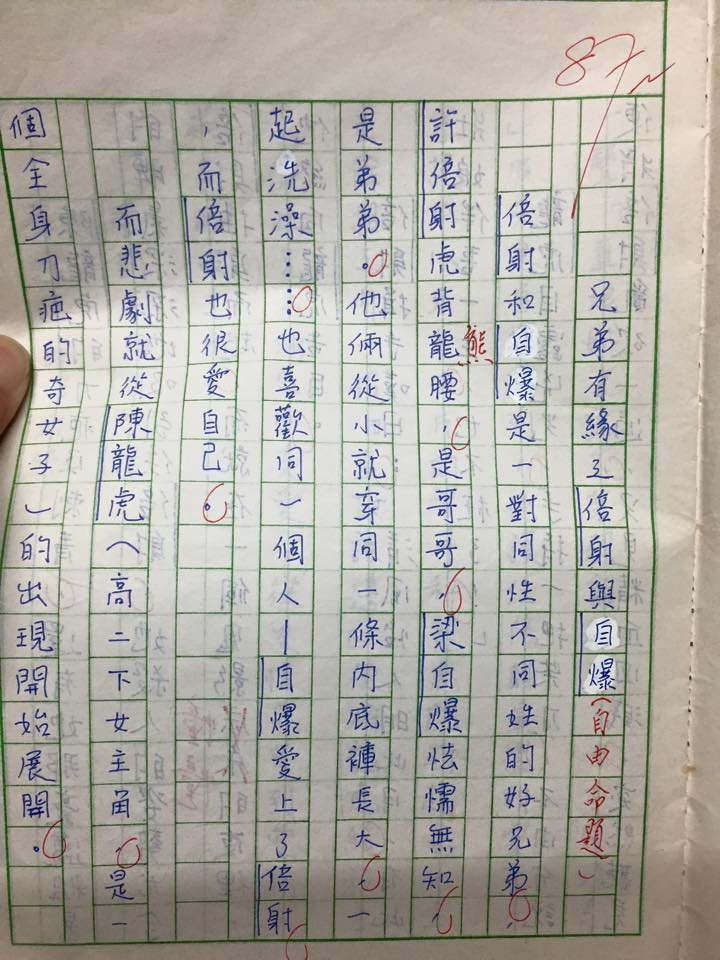 87
兄弟有緣之倍射與自爆(自由命題)
倍射和自爆是一對同性不同姓的好兄弟,
許倍射虎背龍腰,是哥哥,梁自爆怯懦無知,
熊
是弟弟。他倆從小就穿同一條內底褲長大,一
起洗澡……也喜歡同一個人—自爆愛上了倍射
,而倍射也很愛自己。
而悲劇就從陳龍虎(高二下女主角,是一
個全身刀疤的奇女子)的出現開始展開。